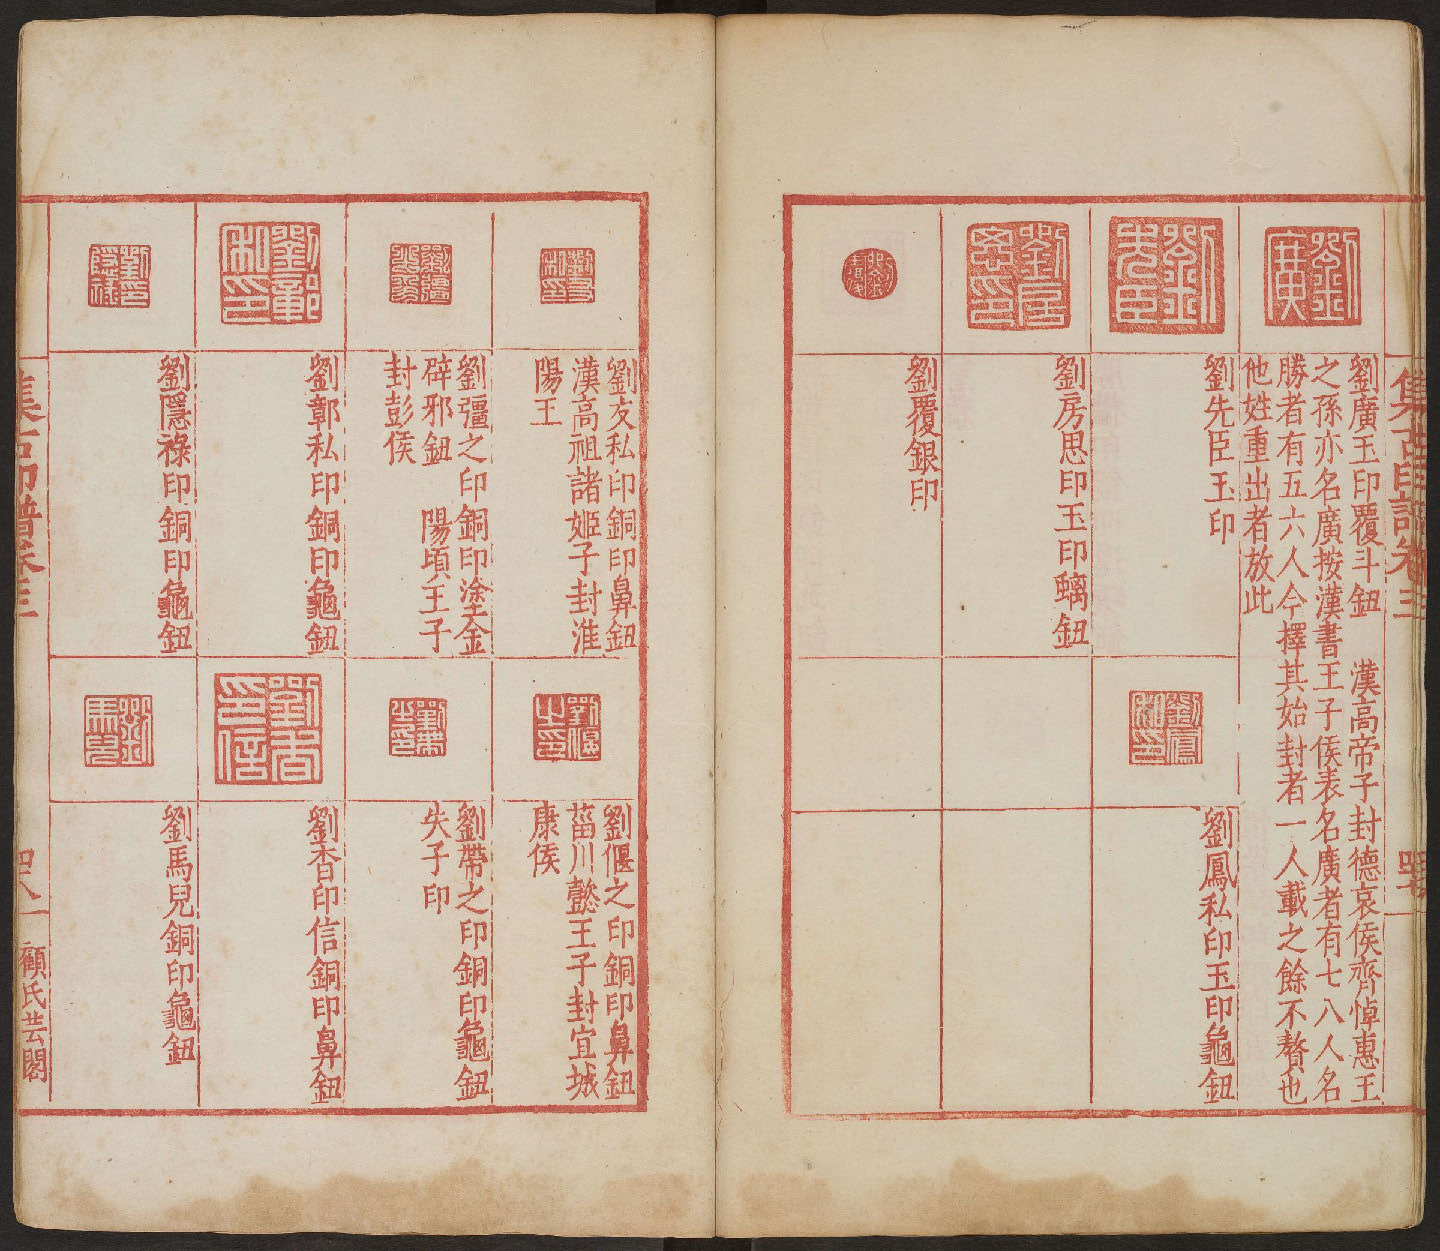 集古印譜卷三
四七
劉廣
劉廣玉印覆斗鈕 漢高帝子封德哀侯齊悼惠王
之孫亦名廣按漢書王子侯表名廣者有七八人名
勝者有五六人今擇其始封者一人載之餘不贅也
他姓重出者放此
劉先臣
劉先臣玉印
劉鳳私印
劉鳳私印玉印龜鈕
劉房思印
劉房思印玉印螭鈕
劉覆
劉覆銀印
劉友私印
劉友私印銅印鼻鈕
漢高祖諸姬子封淮
陽王
劉偃之印
劉偃之印銅印鼻鈕
菑川懿王子封宜城
康侯
劉彊之印銅印塗金
辟邪鈕 陽頃王子
封彭侯
劉帶之印
劉帶之印銅印龜鈕
失子印
劉鄣私印
劉鄣私印銅印龜鈕
劉杏印信
劉杏印信銅印鼻鈕
劉隱祿印
劉隱祿印銅印龜鈕
劉馬兒
劉馬兒銅印龜鈕
集古印譜卷三
四八
顧氏芸閣